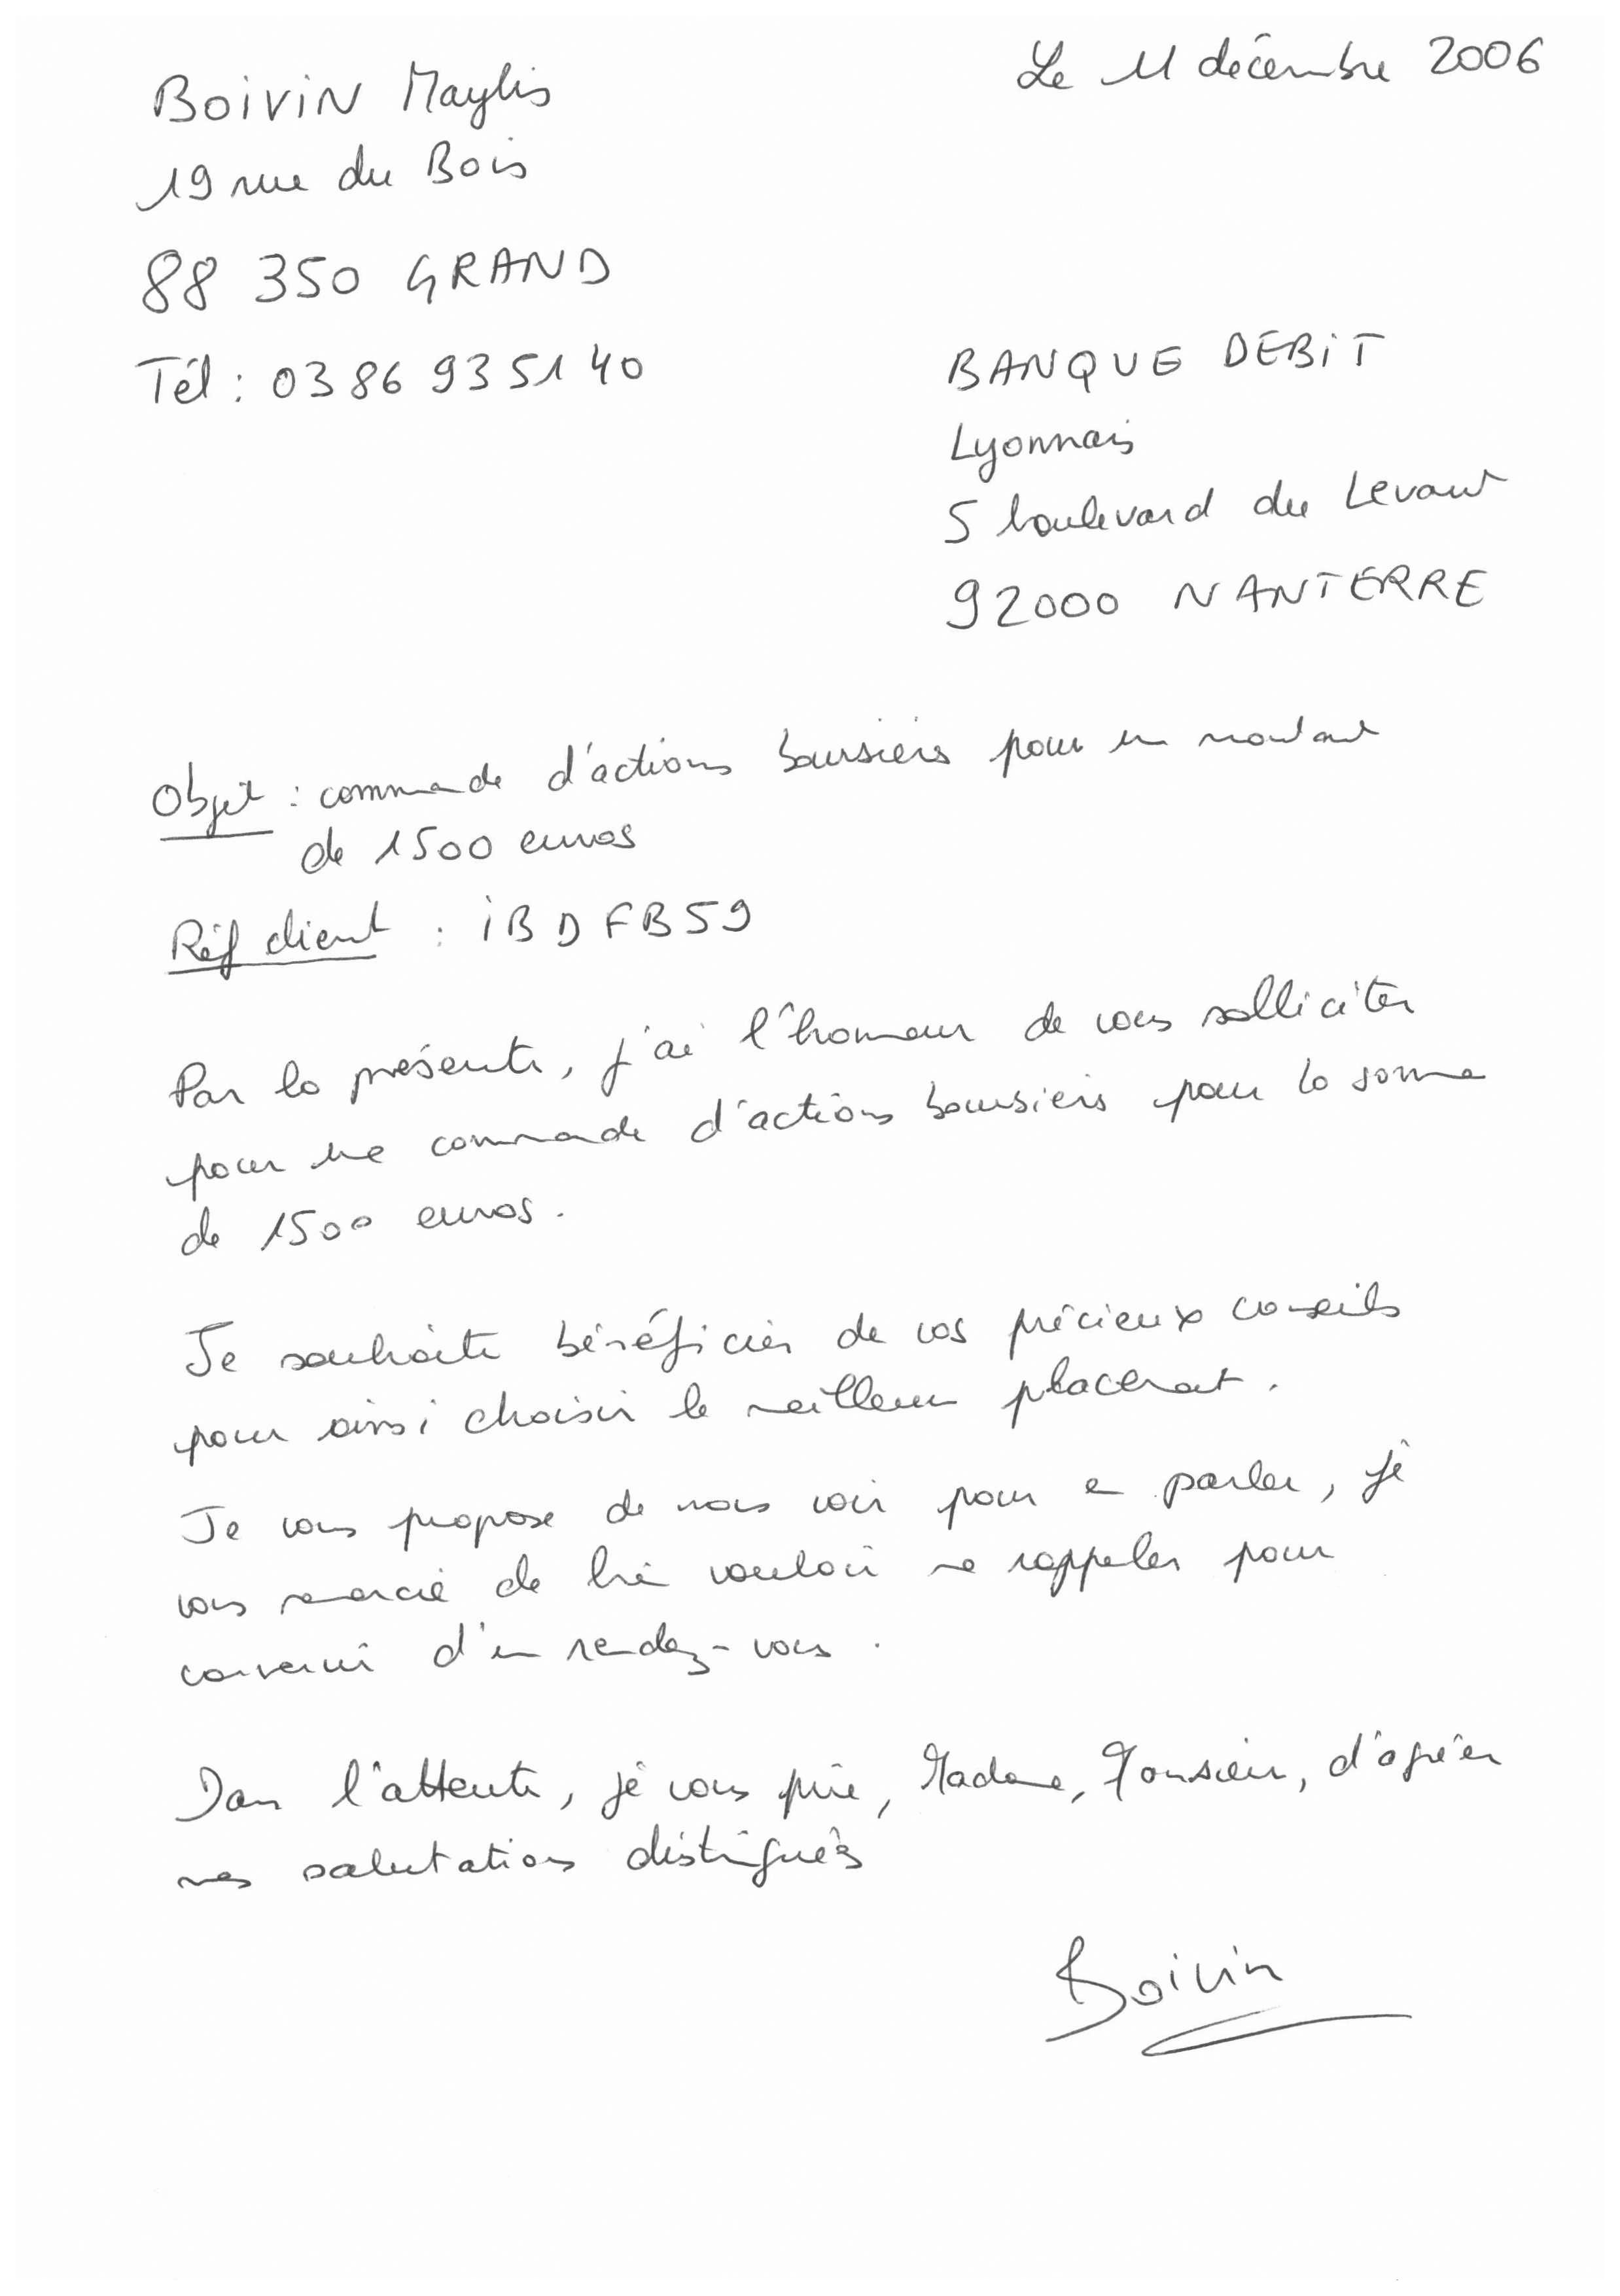 BOIVIN Maylis
19 rue du Bois
88 350 GRAND
Tél : 03 86 93 51 40
Le 11 décembre 2006
BANQUE DEBIT
Lyonnais
5 boulevard du Levant
92000 NANTERRE
Objet : commande d'actions boursiers pour un montant
de 1500 euros
Réf client : iBDFB59
Par la présente, j'ai l'honneur de vous solliciter
pour une commande d'actions boursiers pour la somme
de 1500 euros.
Je souhaite bénéficier de vos précieux conseils
pour ainsi choisir le meilleur placement.
Je vous propose de nous voir pour en parler, je
vous remercie de bien vouloir me rappeler pour
convenir d'un rendez-vous.
Dans l'attente, je vous prie, Madame, Monsieur, d'agréer
mes salutations distinguées
Boivin